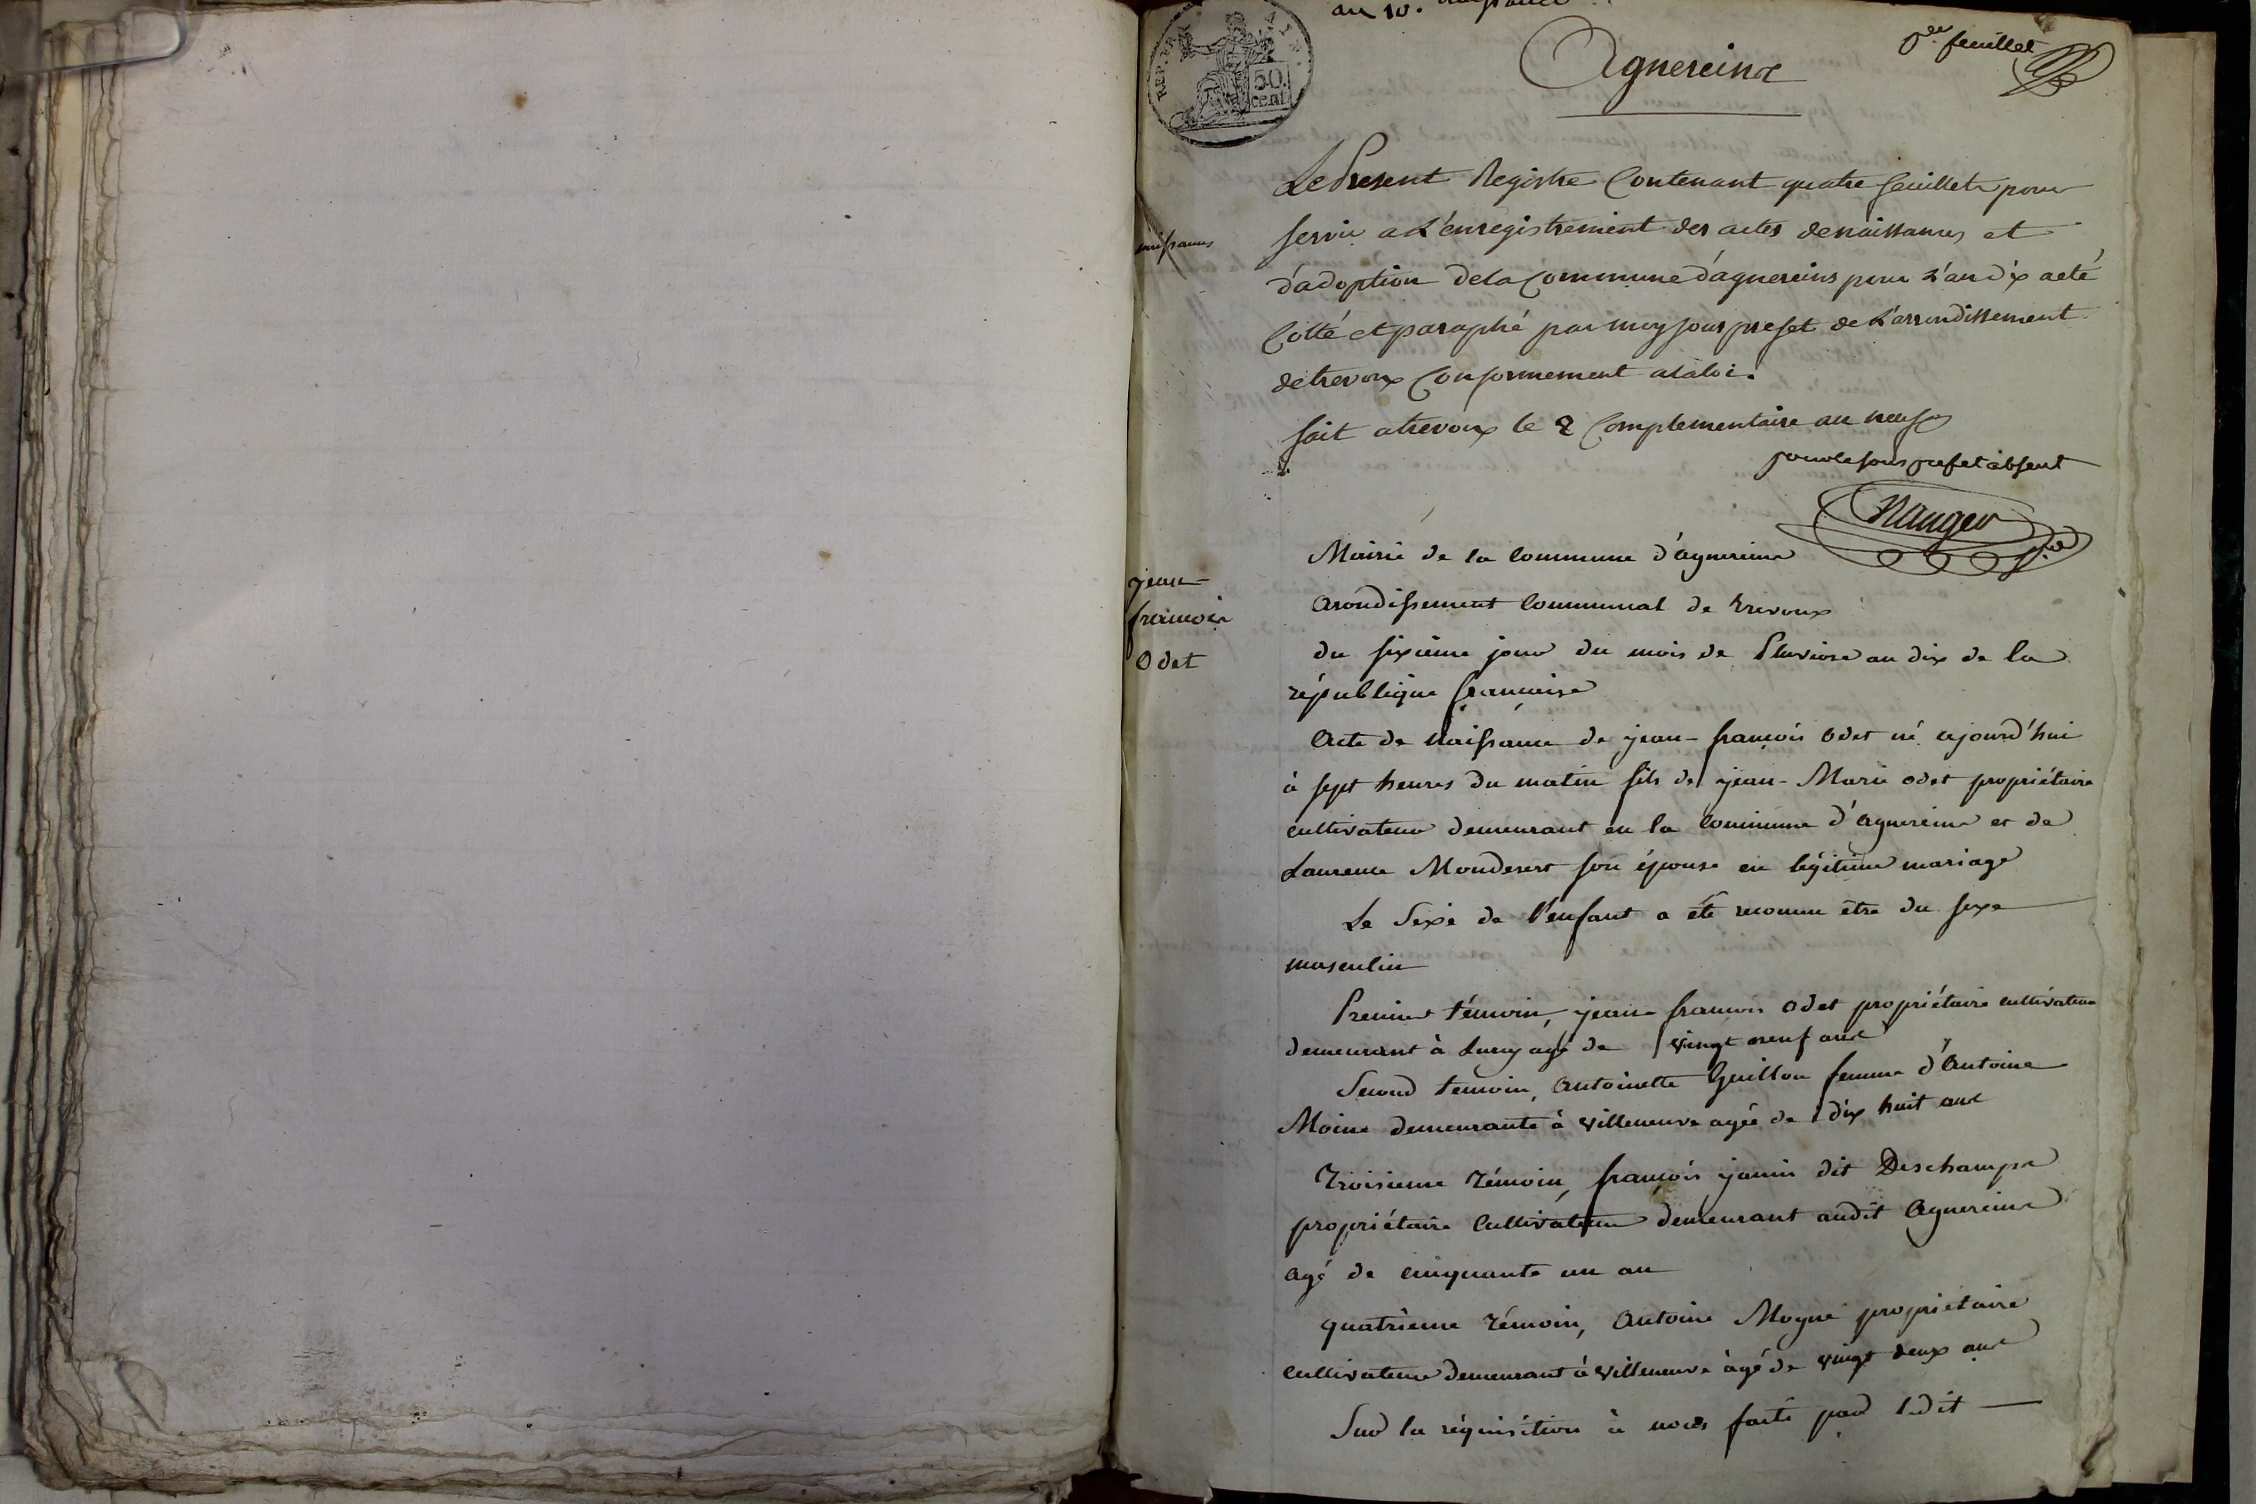 an 10. naissance
REP. FRA
50 cent
Agnereins
1er feuillet
Le Present Registre Contenant quatre feuillets pour
servir a L'enregistrement des actes de naissances et
d'adoption de la Commune d'agnereins pour L'an dix a eté
Cotté et paraphé par moy sous prefet de L'arrondissement
de trevoux Conformement a la loi.
fait a trevoux le 2 Complementaire an neuf
pour le sous prefet absent
naissances
Mairie de la Commune d'agnereins
Arondissement Communal de trevoux
jean
françois
Odet
du sixième jour du mois de Pluviose an dix de la
république française
Acte de Naissance de jean-françois Odet né ajourd'hui
à sept heures du matin fils de jean-Marie odet propriétaire
cultivateur demeurant en la Commune d'agnereins et de
Laurence Monderert son épouse en légitime mariage
Le Sexe de l'enfant a été reconnu être du sexe
masculin
Premier témoin, jean françois Odet propriétaire cultivateur
demeurant à Lurcy agé de vingt neuf ans
Second temoin, Antoinette Guillon femme d'Antoine
Moine demeurante à villeneuve agée de dix huit ans
Troisieme témoin, françois janin dit Deschamps
propriétaire Cultivateur demeurant audit Agnereins
agé de cinquante un an
quatrième témoin, Antoine Moyne propriétaire
cultivateur demeurant à villeneuve àgé de vingt deux ans
Sur la réquisition à nous faite par ledit